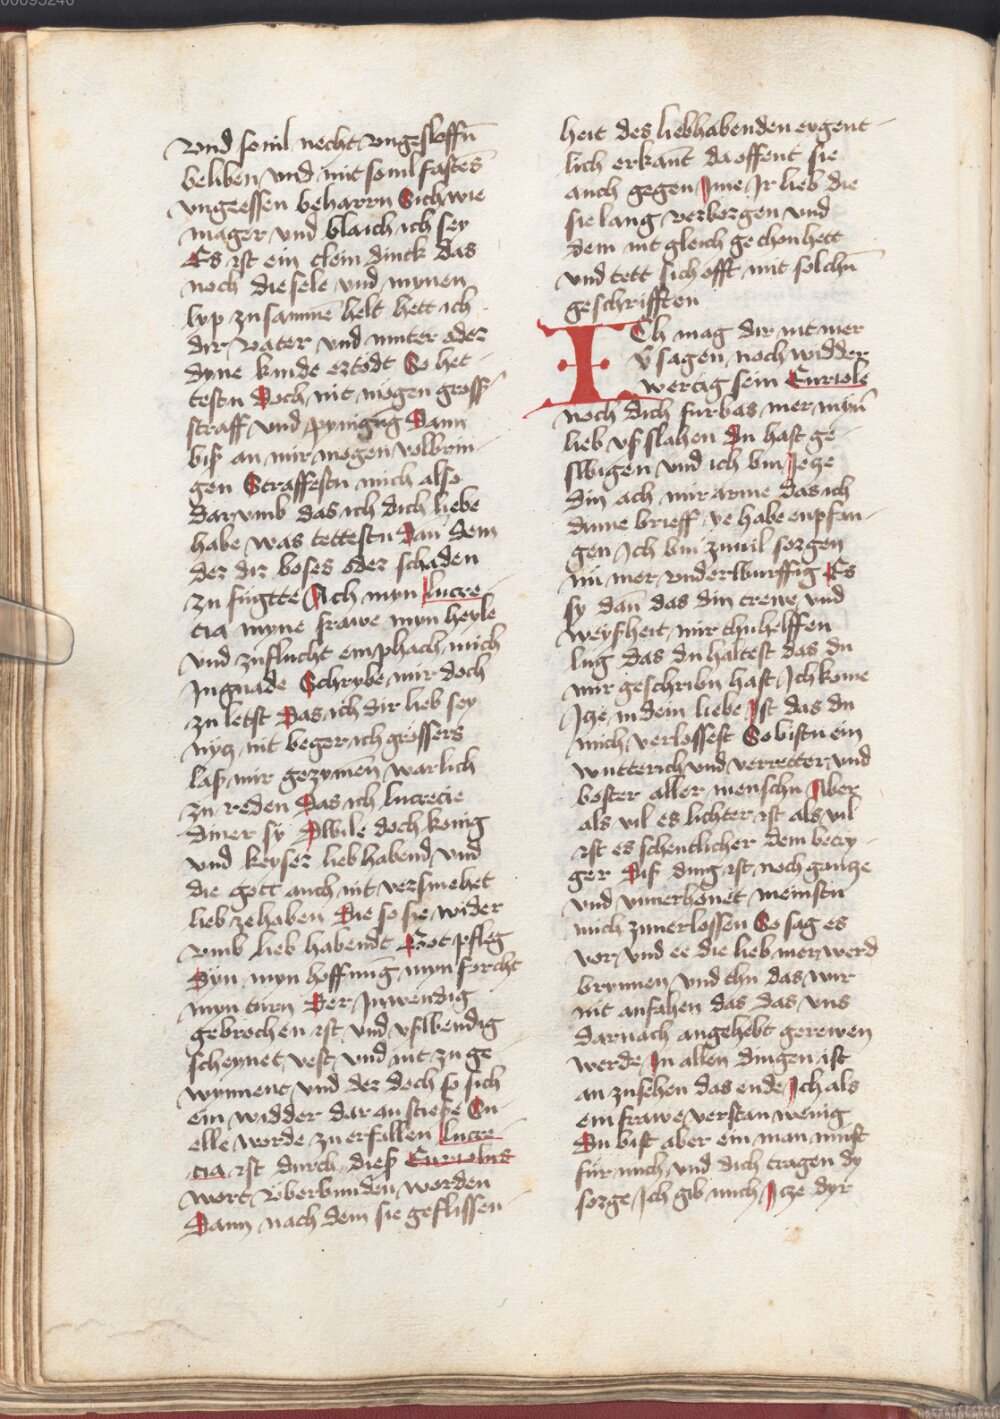 00095240
vnd so uil necht vngesloffn̄
beliben vnd mit so uil fastes
vngeessen beharrn Sich wie
mager vnd blaich ich sey
Es ist ein clein dinck das
noch die sele vnd mynen
lyp zusamme͂ helt hett ich
dir vater vnd muter oder
dyne kinde ertodt So het-
testu Doch nit mögen gröss-
straff vnd pynigūg Dann
biß an mir mögen volbrin-
gen Straffestu mich also
darvmb das ich dich liebe
habe was tettestu Dan̄ dem
der dir boses oder schaden
zu fügtte Ach myn lucre-
cia myne frawe myn heyle
vnd zuflucht emphach mich
In gnade Schrybe mir doch
zu letst Das ich dir lieb sey
nytz nit beger ich grössers
laß mir gezymen warlich
zu reden Das ich lucrecie
diner sy Dwile doch konig
vnd keyser lieb habend vnd
die gott auch nit versmehet
lieb ze haben Die so sie wider
vmb lieb habendt Got pfleg
Dyn myn hoffnūg myn forcht
myn turn Der Inwendig
gebrochen ist vnd vßwendig
scheynet vest vnd nit zu ge-
wynnent vnd der doch so sich
ein widder dar an stieße En-
elle worde zu erfallen lucre-
cia ist durch dieß Euriolus
wort Vberbunden worden
Dann nach dem sie geflissen
heit des liebhabenden eygent-
lich erkan̄t da offent sie
auch gegen Ime Ir lieb die
sie lang verborgen vnd
dem nit gleich gethon hett
vnd tett sich offt mit solchn̄
geschrifften
ICh mag dir nit mer
v̈sagen noch widder
wertig sein Euriole
noch dich furbas mer myn̄
lieb vß slahen Du hast ge-
swigen vnd ich bin Jeze
din ach mir arme das ich
dinne brieff ye habe enpfan-
gen Ich bin zuuil sorgen
nu mer vnderwurffig Es
sy dan̄ das din trewe vnd
weyßheit mir thu helffen
lug das du haltest das du
mir geschribn̄ hast Ich kome
Jtze in dein liebe Ist das du
mich verlossest So bistu ein
wutterich vnd verretter vnd
boster aller menschn̄ Aber
als vil es lichter ist als vil
ist es schentlicher dem betry-
ger Diß ding ist noch gantze
vnd vnuerhönet meinstu
mich zuuerlossen So sag es
vor vnd ee die lieb mer werd
brynnen vnd thu das wir
nit anfahen das das vns
darnach angehebt gerewen
werde In allen dingen ist
an zusehen das ende Ich als
ein frawe verstan wenig
Du bist aber ein man must
für mich vnd dich tragen dy
sorge Ich gib mich Itze dyr